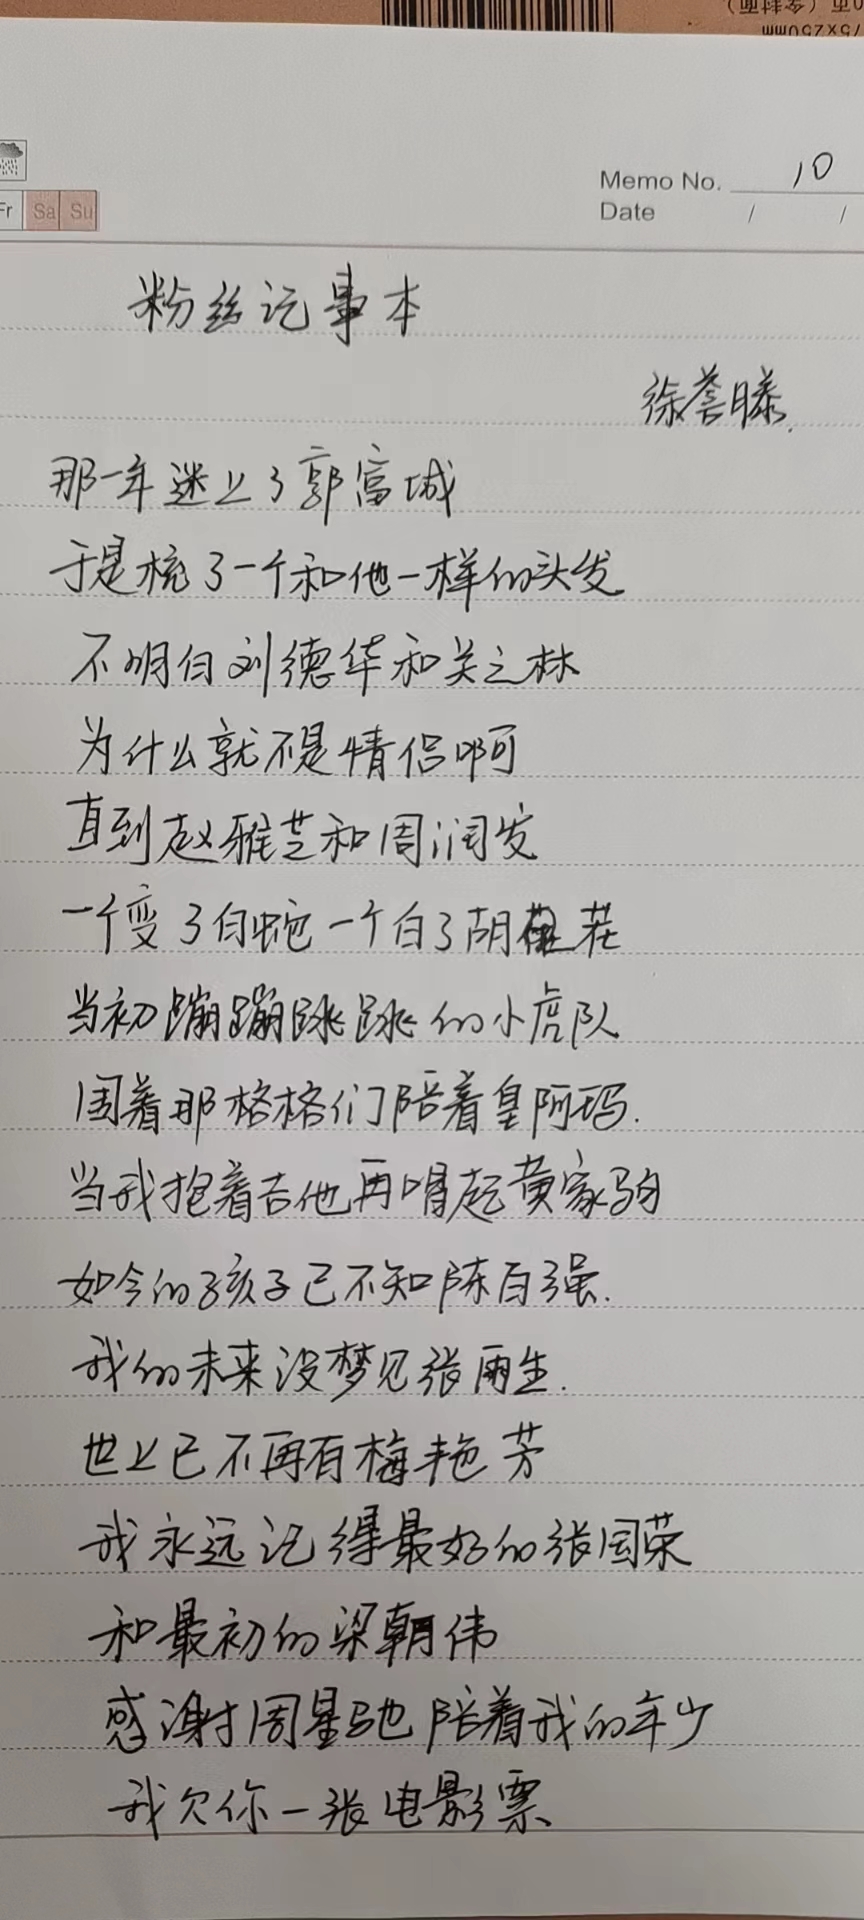 0页（含封面）
75x250mm
Fr Sa Su
Memo No. 10
Date / /
粉丝记事本
徐誉滕
那一年迷上了郭富城
于是梳了一个和他一样的头发
不明白刘德华和关之林
为什么就不是情侣啊
直到赵雅芝和周润发
一个变了白蛇一个白了胡茬
当初蹦蹦跳跳的小虎队
围着那格格们陪着皇阿玛.
当我抱着吉他再唱起黄家驹
如今的孩子已不知陈百强.
我的未来没梦见张雨生.
世上已不再有梅艳芳
我永远记得最好的张国荣
和最初的梁朝伟
感谢周星驰陪着我的年少
我欠你一张电影票